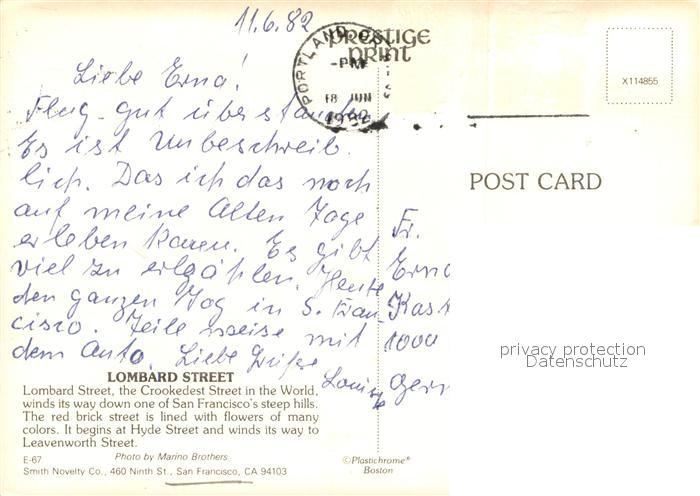 11.6.82
Prestige
Print
PORTLAND
-PM
18 JUN
1982
X114855
Liebe Erna!
Flug-gut überstanden
Es ist Unbeschreib-
lich. Das ich das noch
auf meine Alten Tage
erleben kann. Es gibt
viel zu erzählen. Heute
den ganzen Tag in S. Fran-
cisco. Teile weise mit
dem Auto. Liebe Grüße
Louise
POST CARD
Fr.
Erna
Kast
1000
Germ
privacy protection
Datenschutz
LOMBARD STREET
Lombard Street, the Crookedest Street in the World,
winds its way down one of San Francisco's steep hills.
The red brick street is lined with flowers of many
colors. It begins at Hyde Street and winds its way to
Leavenworth Street.
E-67 Photo by Marino Brothers
Smith Novelty Co., 460 Ninth St., San Francisco, CA 94103
©Plastichrome®
Boston